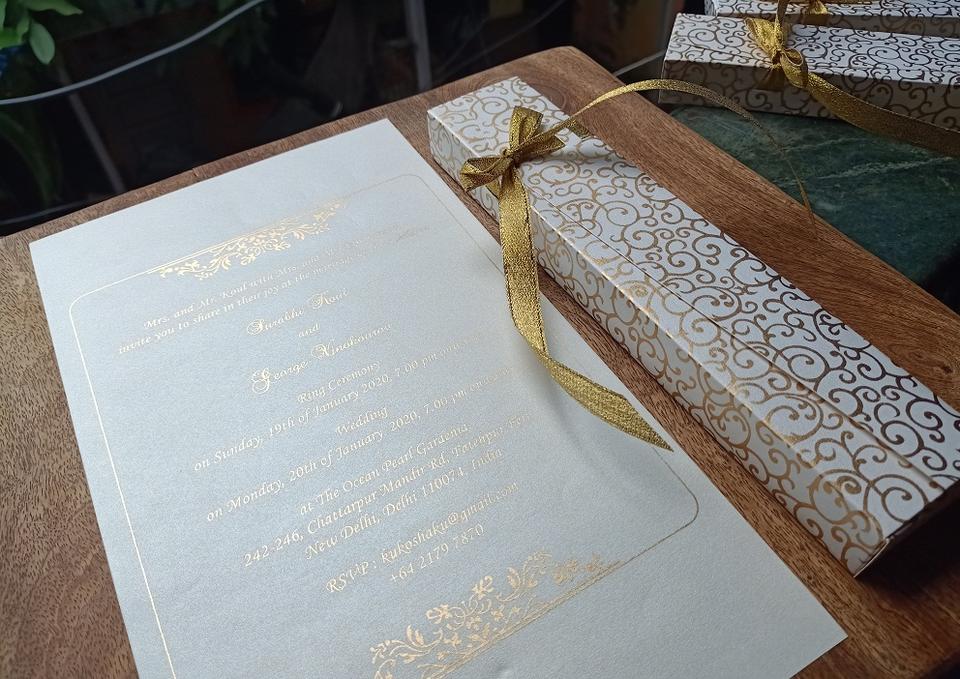 Mrs. and Mr. Koul with Mrs. and Mr.
invite you to share in their joy at the marriage of
Surabhi Koul
and
George
Ring Ceremony
on Sunday, 19th of January 2020, 7.00 pm onwards
Wedding
on Monday, 20th of January 2020, 7.00 pm onwards
at The Ocean Pearl Gardenia
242-246, Chattarpur Mandir Rd, Fatehpur
New Delhi, Delhi 110074, India
RSVP : kukoshaku@gmail.com
+64 2179 7870